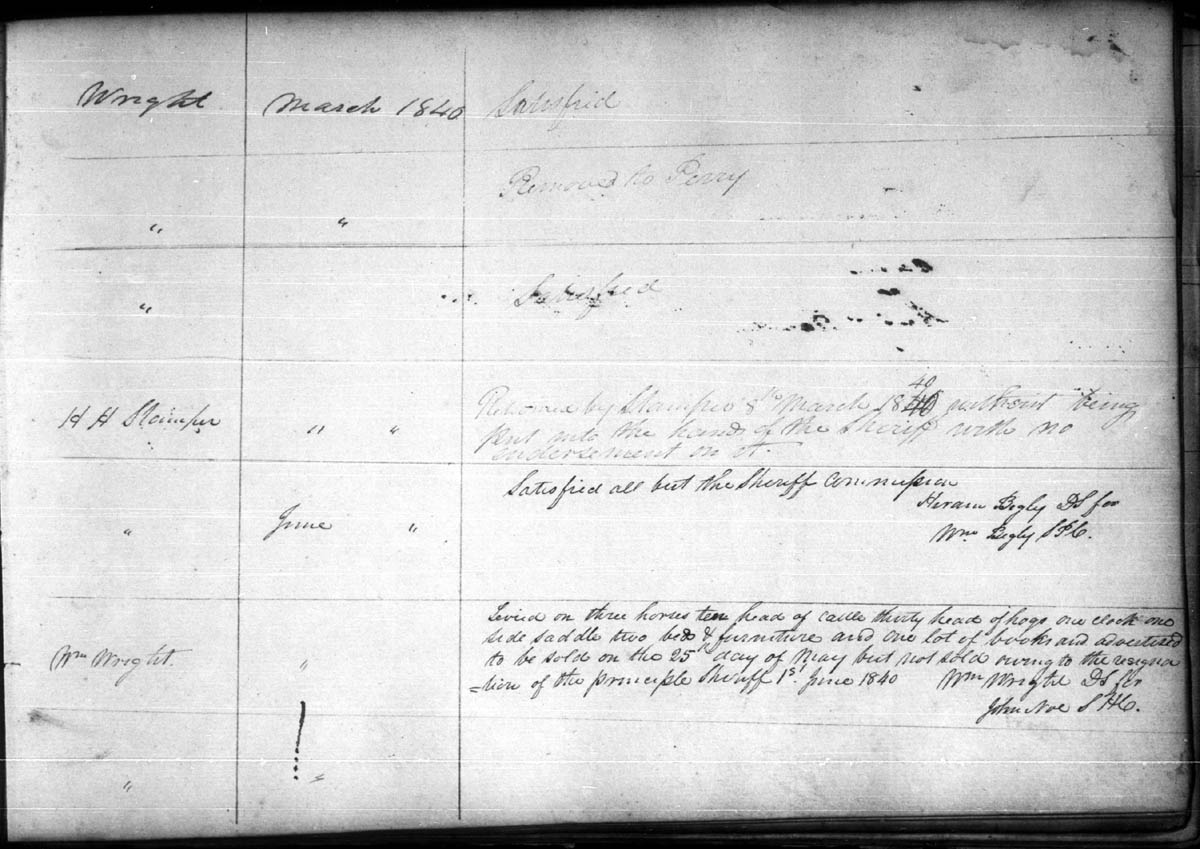 Wright March 1840 Satisfied
Removed to Perry
" "
" Satisfied
40
H H Stamper " " Returned by Stamper 8th March 1840 without being
put into the hands of the Sheriff with no
endorsement on it.
Satisfied all but the Sheriff Commission
" June " Hiram Begly DS for
Wm Begly S P C.
Levied on three horses ten head of cattle thirty head of hogs one clock one
side saddle two beds & furniture and one lot of books and advertised
Wm Wright. " to be sold on the 25th day of May but not sold owing to the resigna
=tion of the principle Sheriff 1st June 1840 Wm Wright DS for
John Noe S H C.
" "